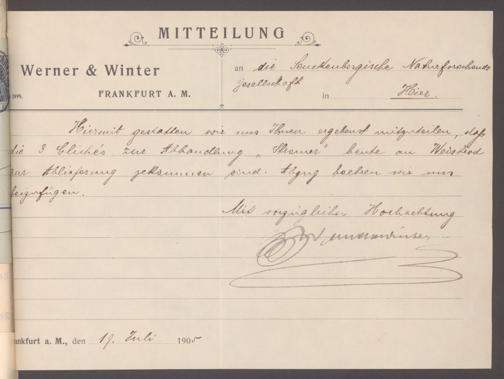 MITTEILUNG
Werner & Winter
FRANKFURT A. M.
an die Senckenbergische Naturforschende
Gesellschaft
in Hier.
Hiermit gestatten wir uns Ihnen ergebenst mitzuteilen, daß
die 3 Clichés zur Abhandlung „ " heute an
zur Ablieferung gekommen sind. Abzug beehren wir uns
beizufügen.
Mit vorzüglicher Hochachtung
Werner & Winter
Frankfurt a. M., den 17. Juli 1905